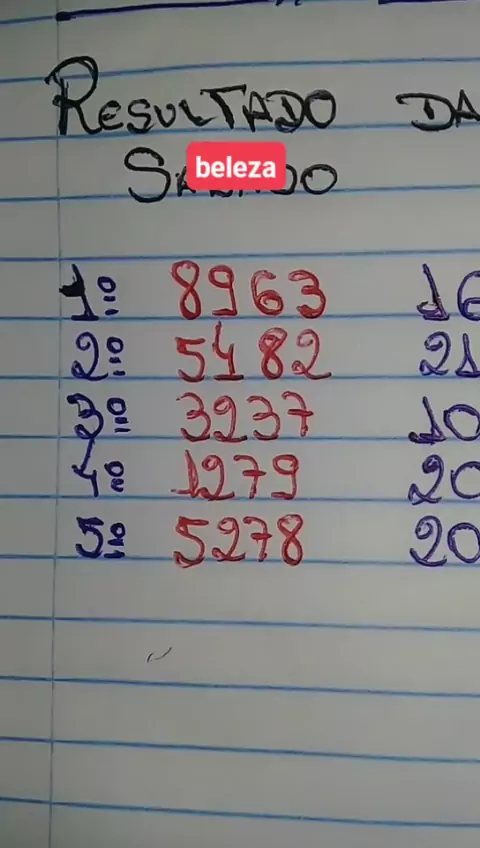 RESULTADO DA
beleza
1º 8963 16
2º 5482 21
3º 3237 10
4º 1279 20
5º 5278 20